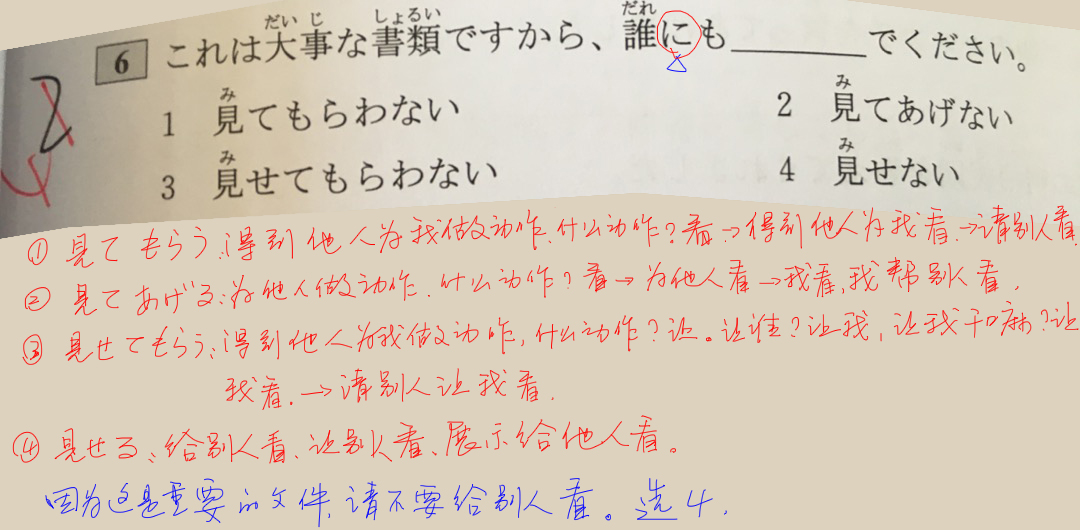 6 これは大事な書類ですから、誰にも＿＿＿＿でください。
1 見てもらわない
2 見てあげない
3 見せてもらわない
4 見せない
① 見てもらう:得到他人为我做动作,什么动作?看→得到他人为我看→请别人看
② 見てあげる:为他人做动作,什么动作?看→为他人看→我看,我帮别人看.
③ 見せてもらう:得到他人为我做动作,什么动作?让。让谁?让我,让我干嘛?让
我看.→请别人让我看.
④ 見せる:给别人看、让别人看、展示给他人看。
因为这是重要的文件,请不要给别人看。选4.